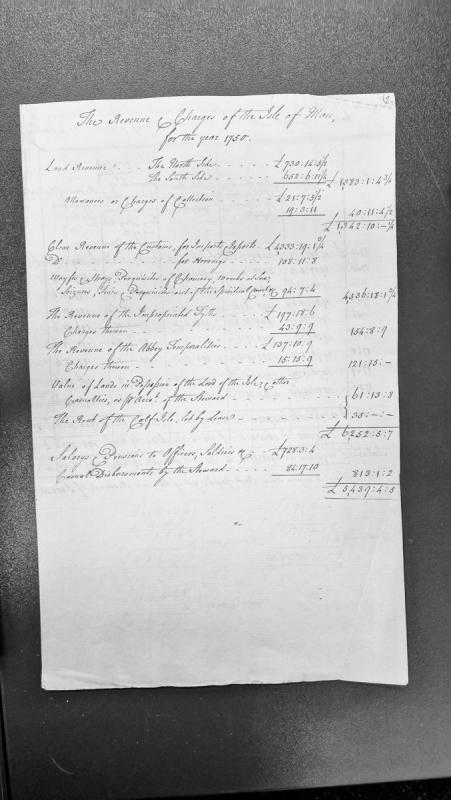 The Revenue & Charges of the Isle of Man,
for the year 1750.
Land Revenue . . The North Side . . . . £730:14:5½
The South Side . . . . 652:6:11¼ £1383:1:4¾
Allowances or Charges of Collection . . . . . £21:7:5½
19:3:11 40:11:4½
£1342:10:-¼
Clear Revenue of the Customs, for Imports & Exports . . £4333:19:1¾
Do. . . . . . . . . for Herrings . . . . . 108:11:8
Wayfs & Strays Perquisites of Chancery Wrecks at Sea,
Seizures, Fines & Perquisites out of the Spiritual Courts &c 94:7:4 4,536:18:1¾
The Revenue of the Impropriated Tyths . . . . £197:18:6
Charges thereon . . . . . . . 43:9:9 154:8:9
The Revenue of the Abbey Temporalities . . . . £137:10:9
Charges thereon . . . . . . . 15:15:9 121:15:-
Value of Lands in Possession of the Lord of the Isle, & other
Casualties, as pr Acct. of the Steward . . . . . . } 61:13:8
The Rent of the Calf Isle, let by Lease - . . . . . } 35:-:-
£6,252:5:7
Salarys & Pensions to Officers, Soldiers &c £728:3:4
Casual Disbursements by the Steward . . . . . . 84:17:10 813:1:2
£5,439:4:5